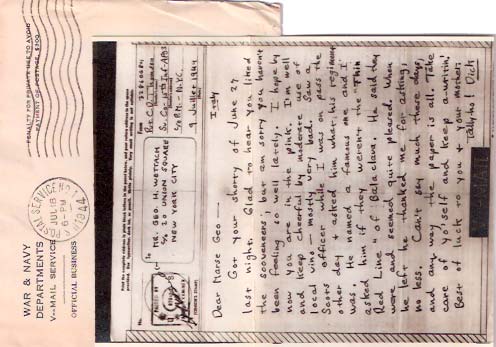 PENALTY FOR PRIVATE USE TO AVOID
PAYMENT OF POSTAGE, $300
WAR & NAVY
DEPARTMENTS
V-MAIL SERVICE
OFFICIAL BUSINESS
U.S. POSTAL SERVICE NO. 1
JUL 18
6 PM
1944
Print the complete address in plain block letters in the panel below, and your return address in the space provided.
To
MR. GEO. H. WETTACH
20 UNION SQUARE
NEW YORK CITY
From
Pvt. C. D. Thomason
N.Y.C.
9 Juillet 1944
Italy
Dear Marse Geo —
Got your shorty of June 27
last night. Glad to hear you liked
the sooveneers, but am sorry you haven't
been feeling so well lately. I hope by
now you are in the pink. I'm well
and keep cheerful by moderate use of
local vino — mostly very bad. Saw a
Scots officer while I was on pass the
other day & asked him what his regiment
was. He named a famous one and I
asked him if they weren't the "Thin
Red Line" of Balaclava. He said they
were and seemed quite pleased. When
he left he thanked me for asking,
no less. Can't say much these days,
and any way the paper is all. Take
care of yo'self and keep a-writin'.
Best of luck to you & your mother.
Tally-ho! Dick
V-MAIL